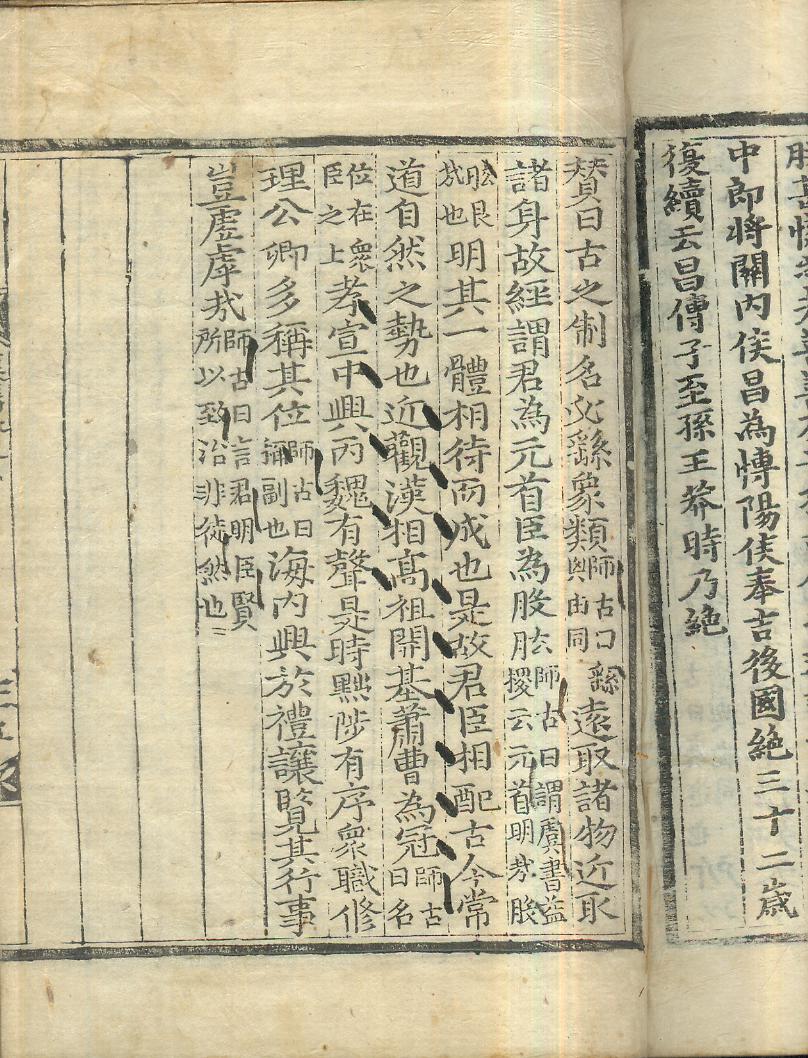 中郎將關內侯昌為博陽侯奉吉後國絶三十二歲
復續云昌傳子至孫王莽時乃絶
賛曰古之制名必繇象類師古曰繇與由同遠取諸物近取
諸身故經謂君為元首臣為股肱師古曰謂虞書益稷云元首明哉股
肱良哉也明其一體相待而成也是故君臣相配古今常
道自然之勢也近觀漢相高祖開基蕭曹為冠師古曰名
位在衆臣之上孝宣中興丙魏有聲是時黜陟有序衆職修
理公卿多稱其位師古曰稱副也海內興於禮讓覽其行事
豈虛虖哉師古曰言君明臣賢所以致治非徒然也